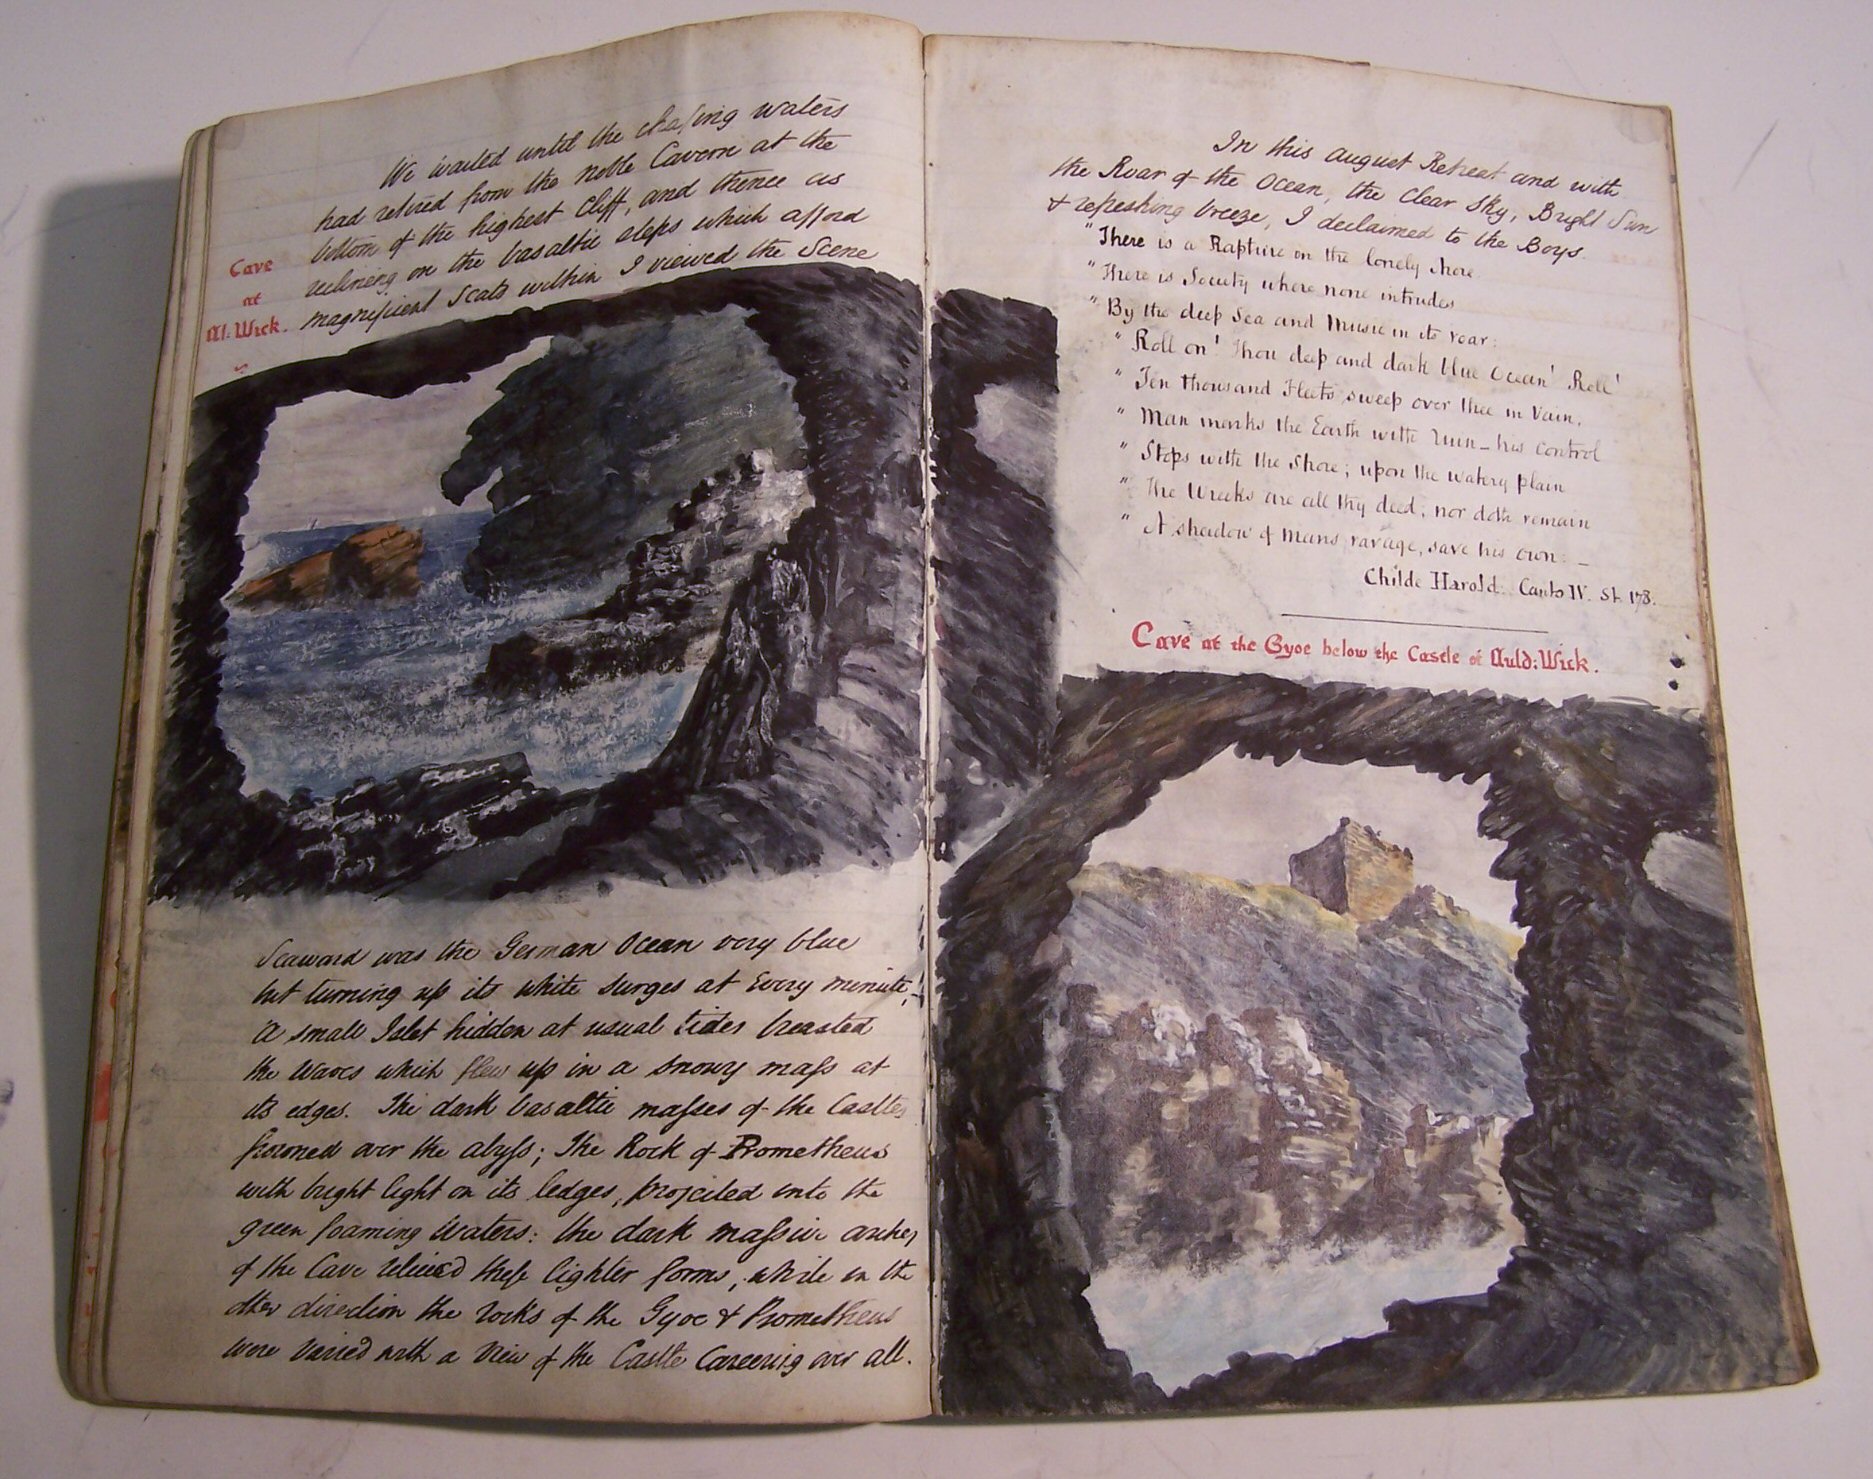 We waited until the chafing waters
had retired from the noble Cavern at the
bottom of the highest Cliff, and thence as
reclining on the basaltic steps which afford
magnificent Seats within I viewed the Scene
Cave
at
Al: Wick.
Seaward was the German Ocean very blue
but turning up its white surges at Every minute,
A small Islet hidden at usual tides breasted
the Waves which flew up in a snowy maſs at
its edges. The dark basaltic maſses of the Castles
frowned over the abyſs; The Rock of Prometheus
with bright light on its ledges, projected into the
green foaming Waters: the dark maſsive arches
of the Cave relieved these lighter forms, while in the
other direction the rocks of the Gyoe & Prometheus
were Varied with a View of the Castle Careering over all.
In this august Retreat and with
the Roar of the Ocean, the Clear Sky, Bright Sun
& refreshing breeze, I declaimed to the Boys.
"There is a Rapture on the lonely shore
"There is Society where none intrudes
"By the deep Sea and Music in its roar:
"Roll on! Thou deep and dark blue Ocean! Roll!
"Ten thousand Fleets sweep over thee in Vain,
"Man marks the Earth with ruin - his control
"Stops with the Shore; upon the watery plain
"The Wrecks are all thy deed; nor doth remain
"A shadow of mans ravage, save his own: _
Childe Harold. Canto IV. St. 178.
Cave at the Gyoe below the Castle of Auld: Wick.